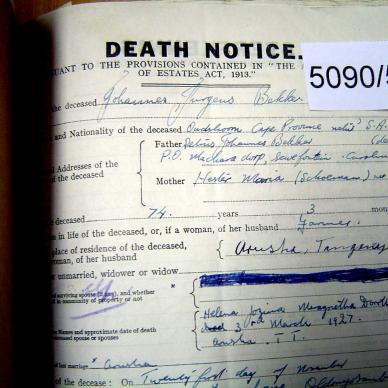 DEATH NOTICE.
SUANT TO THE PROVISIONS CONTAINED IN "THE
OF ESTATES ACT, 1913."
5090/5
the deceased Johannes Jurgens Bekker
and Nationality of the deceased Oudtshoorn Cape Province S.A.
Father Johannes Bekker
Addresses of the P.O. Machadodorp,
of the deceased
Mother Hester Maria (Schoeman)
the deceased 74 years 3 mon
on in life of the deceased, or, if a woman, of her husband Farmer
place of residence of the deceased,
woman, of her husband Arusha,
or unmarried, widower or widow
of surviving spouse (if any), and whether
in community of property or not
Helena
3rd March 1927.
or Names and approximate date of death Arusha T.T.
deceased spouse or spouses
last marriage Arusha
the decease: On Twenty first day of November